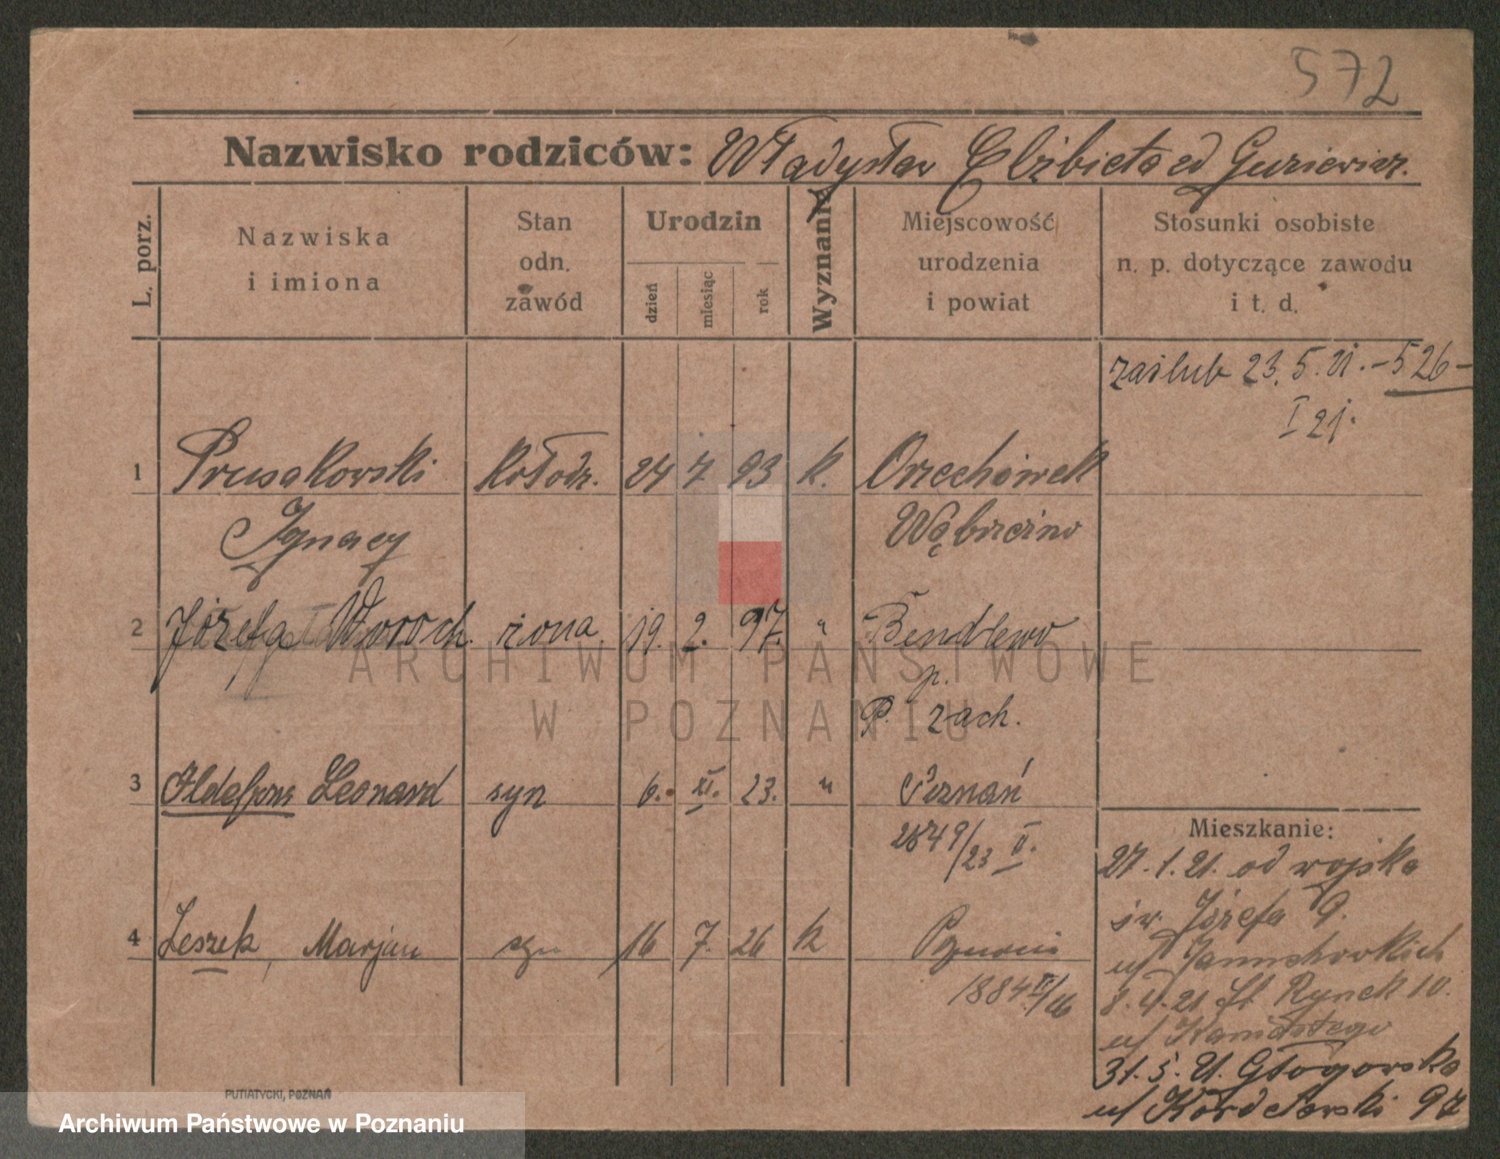 572
Nazwisko rodziców: Władysław Elżbieta
L. porz.
Nazwiska i imiona
Stan odn. zawód
Urodzin
dzień
miesiąc
rok
Wyznanie
Miejscowość urodzenia i powiat
Stosunki osobiste n. p. dotyczące zawodu i t. d.
zaślub 23.5.21. - 526 -
I 21.
1 Prusakowski Kołodz. 24 7 93 k. Orzechówek
Ignacy
2 Józefa Woroch. żona. 19. 2. 97. " Bendlewo
p.
P. zach.
3 Ildefons Leonard syn 6. XI. 23. " Poznań
2649/23 II.
Mieszkanie:
27.1.21. od wojska
św. Józefa 9.
4 Leszek, Marjan syn 16 7. 26 k
8.4.21 St. Rynek 10.
31.5.21. Głogowska
97
PUTIATYCKI, POZNAŃ
ARCHIWUM PAŃSTWOWE
W POZNANIU
Archiwum Państwowe w Poznaniu